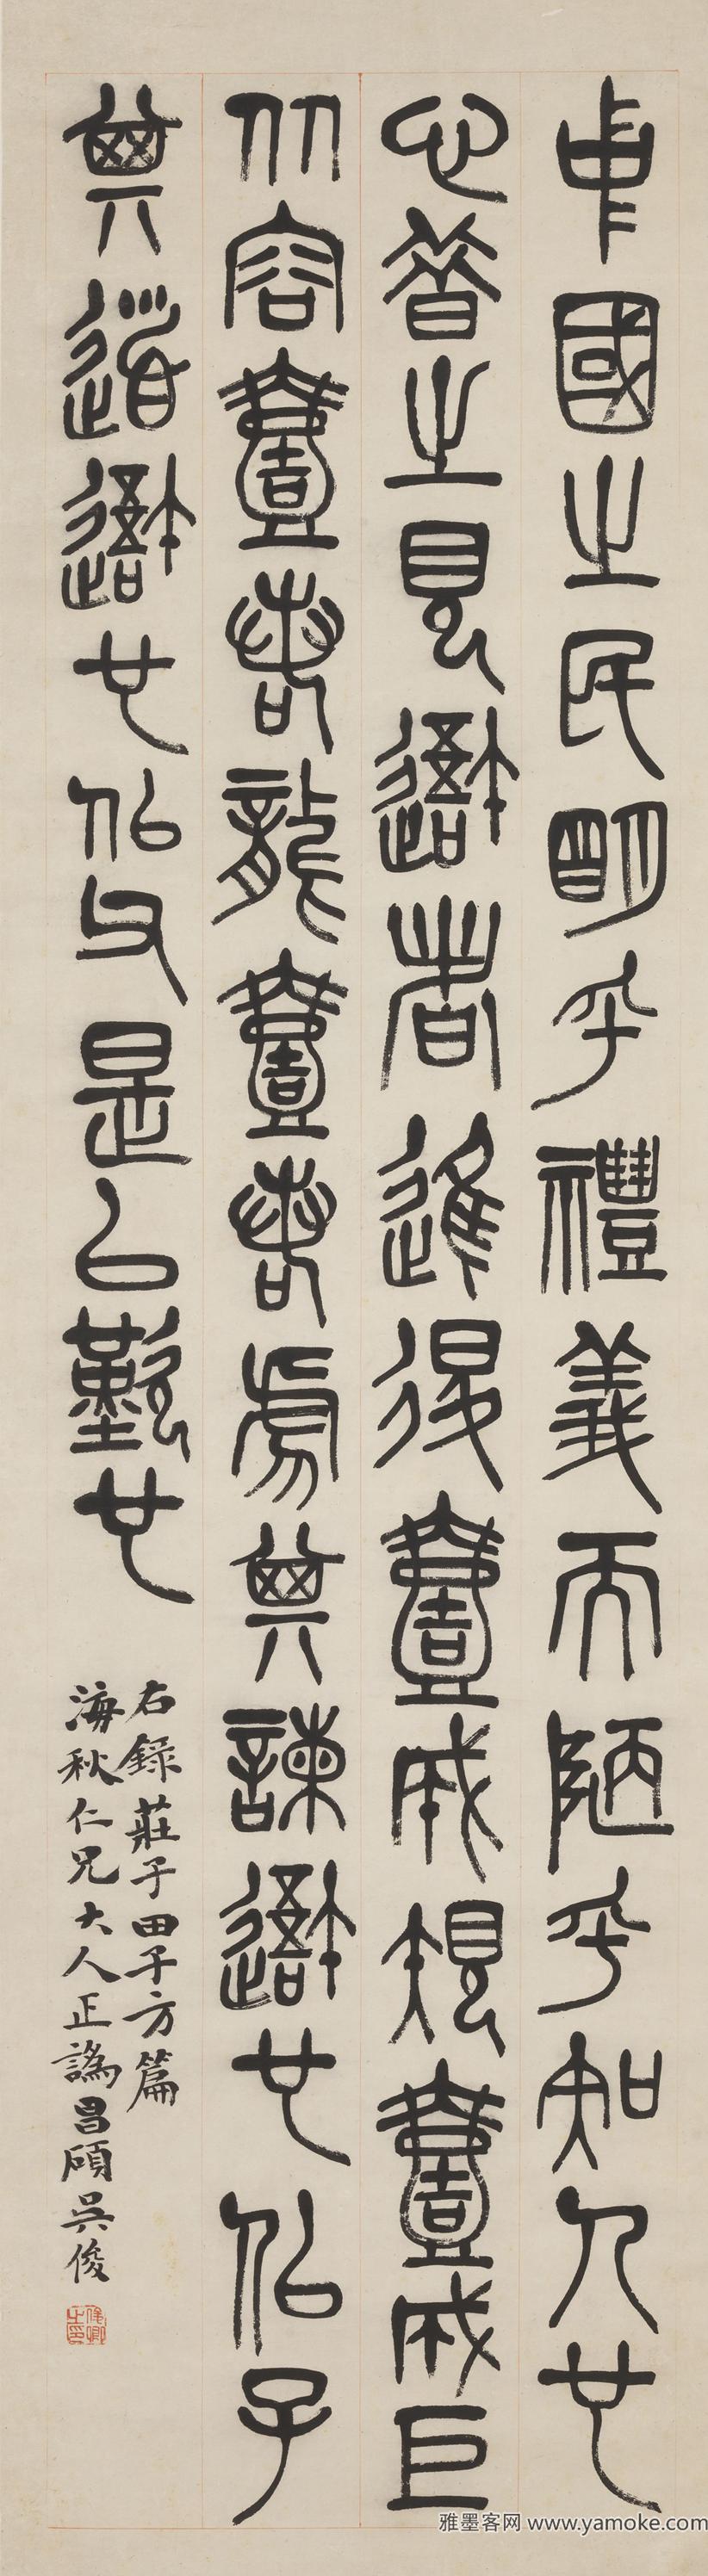 中國之民明乎禮義而陋乎知人也
心昔之見吾者進退壹成規壹成巨
从容壹若龍壹若虎其諫吾也似子
其道吾也似父是以歎也
右錄莊子田子方篇
海秋仁兄大人正譌昌碩吳俊
俊卿之印
雅墨客网 www.yamoke.com